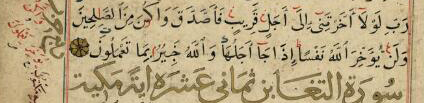 رَبِّ لَوْلَا أَخَّرْتَنِي إِلَىٰ أَجَلٍ قَرِيبٍ فَأَصَّدَّقَ وَأَكُنْ مِنَ الصَّالِحِينَ
وَلَنْ يُؤَخِّرَ اللَّهُ نَفْسًا إِذَا جَاءَ أَجَلُهَا وَاللَّهُ خَبِيرٌ بِمَا تَعْمَلُونَ
سورة التغابن ثماني عشرة آية مكية